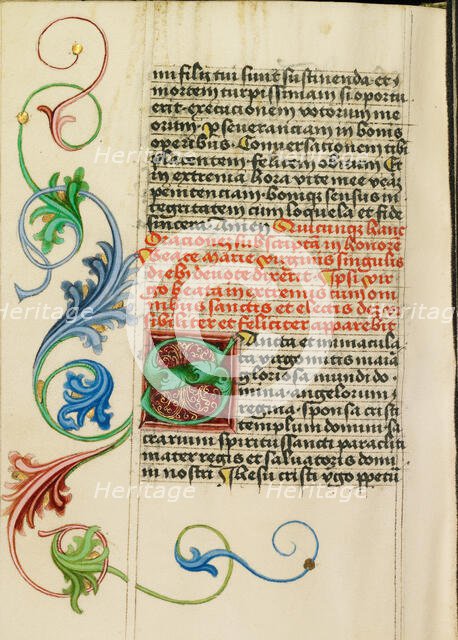 mi filij tui sunt sustinenda et
mortem turpissimam si oportu
erit execucionem votorum me
orum Perseveranciam in bonis
operibus Conversacionem tibi
placentem felicem obitum Et
in extrema hora vite mee veram
penitenciam bonique sensus in
tegritatem cum loquela et fide
sincera Amen Quicunque hanc
Oracionem subscriptam in honore
beate Marie virginis singulis
diebus devote dixerit Ipsi vir
go beata in extremis cum om
nibus sanctis et electis dei vi
sibiliter et feliciter apparebit
Sancta et immacula
ta virgo maria
gloriosa mundi do
mina angelorum
regina sponsa cristi
templum domini sa
crarium spiritus sancti paracliti
mater regis et salvatoris domi
ni nostri Jhesu cristi virgo perpetu
Heritage
Heritage
Heritage
Heritage
Heritage
Heritage
Heritage
Heritage